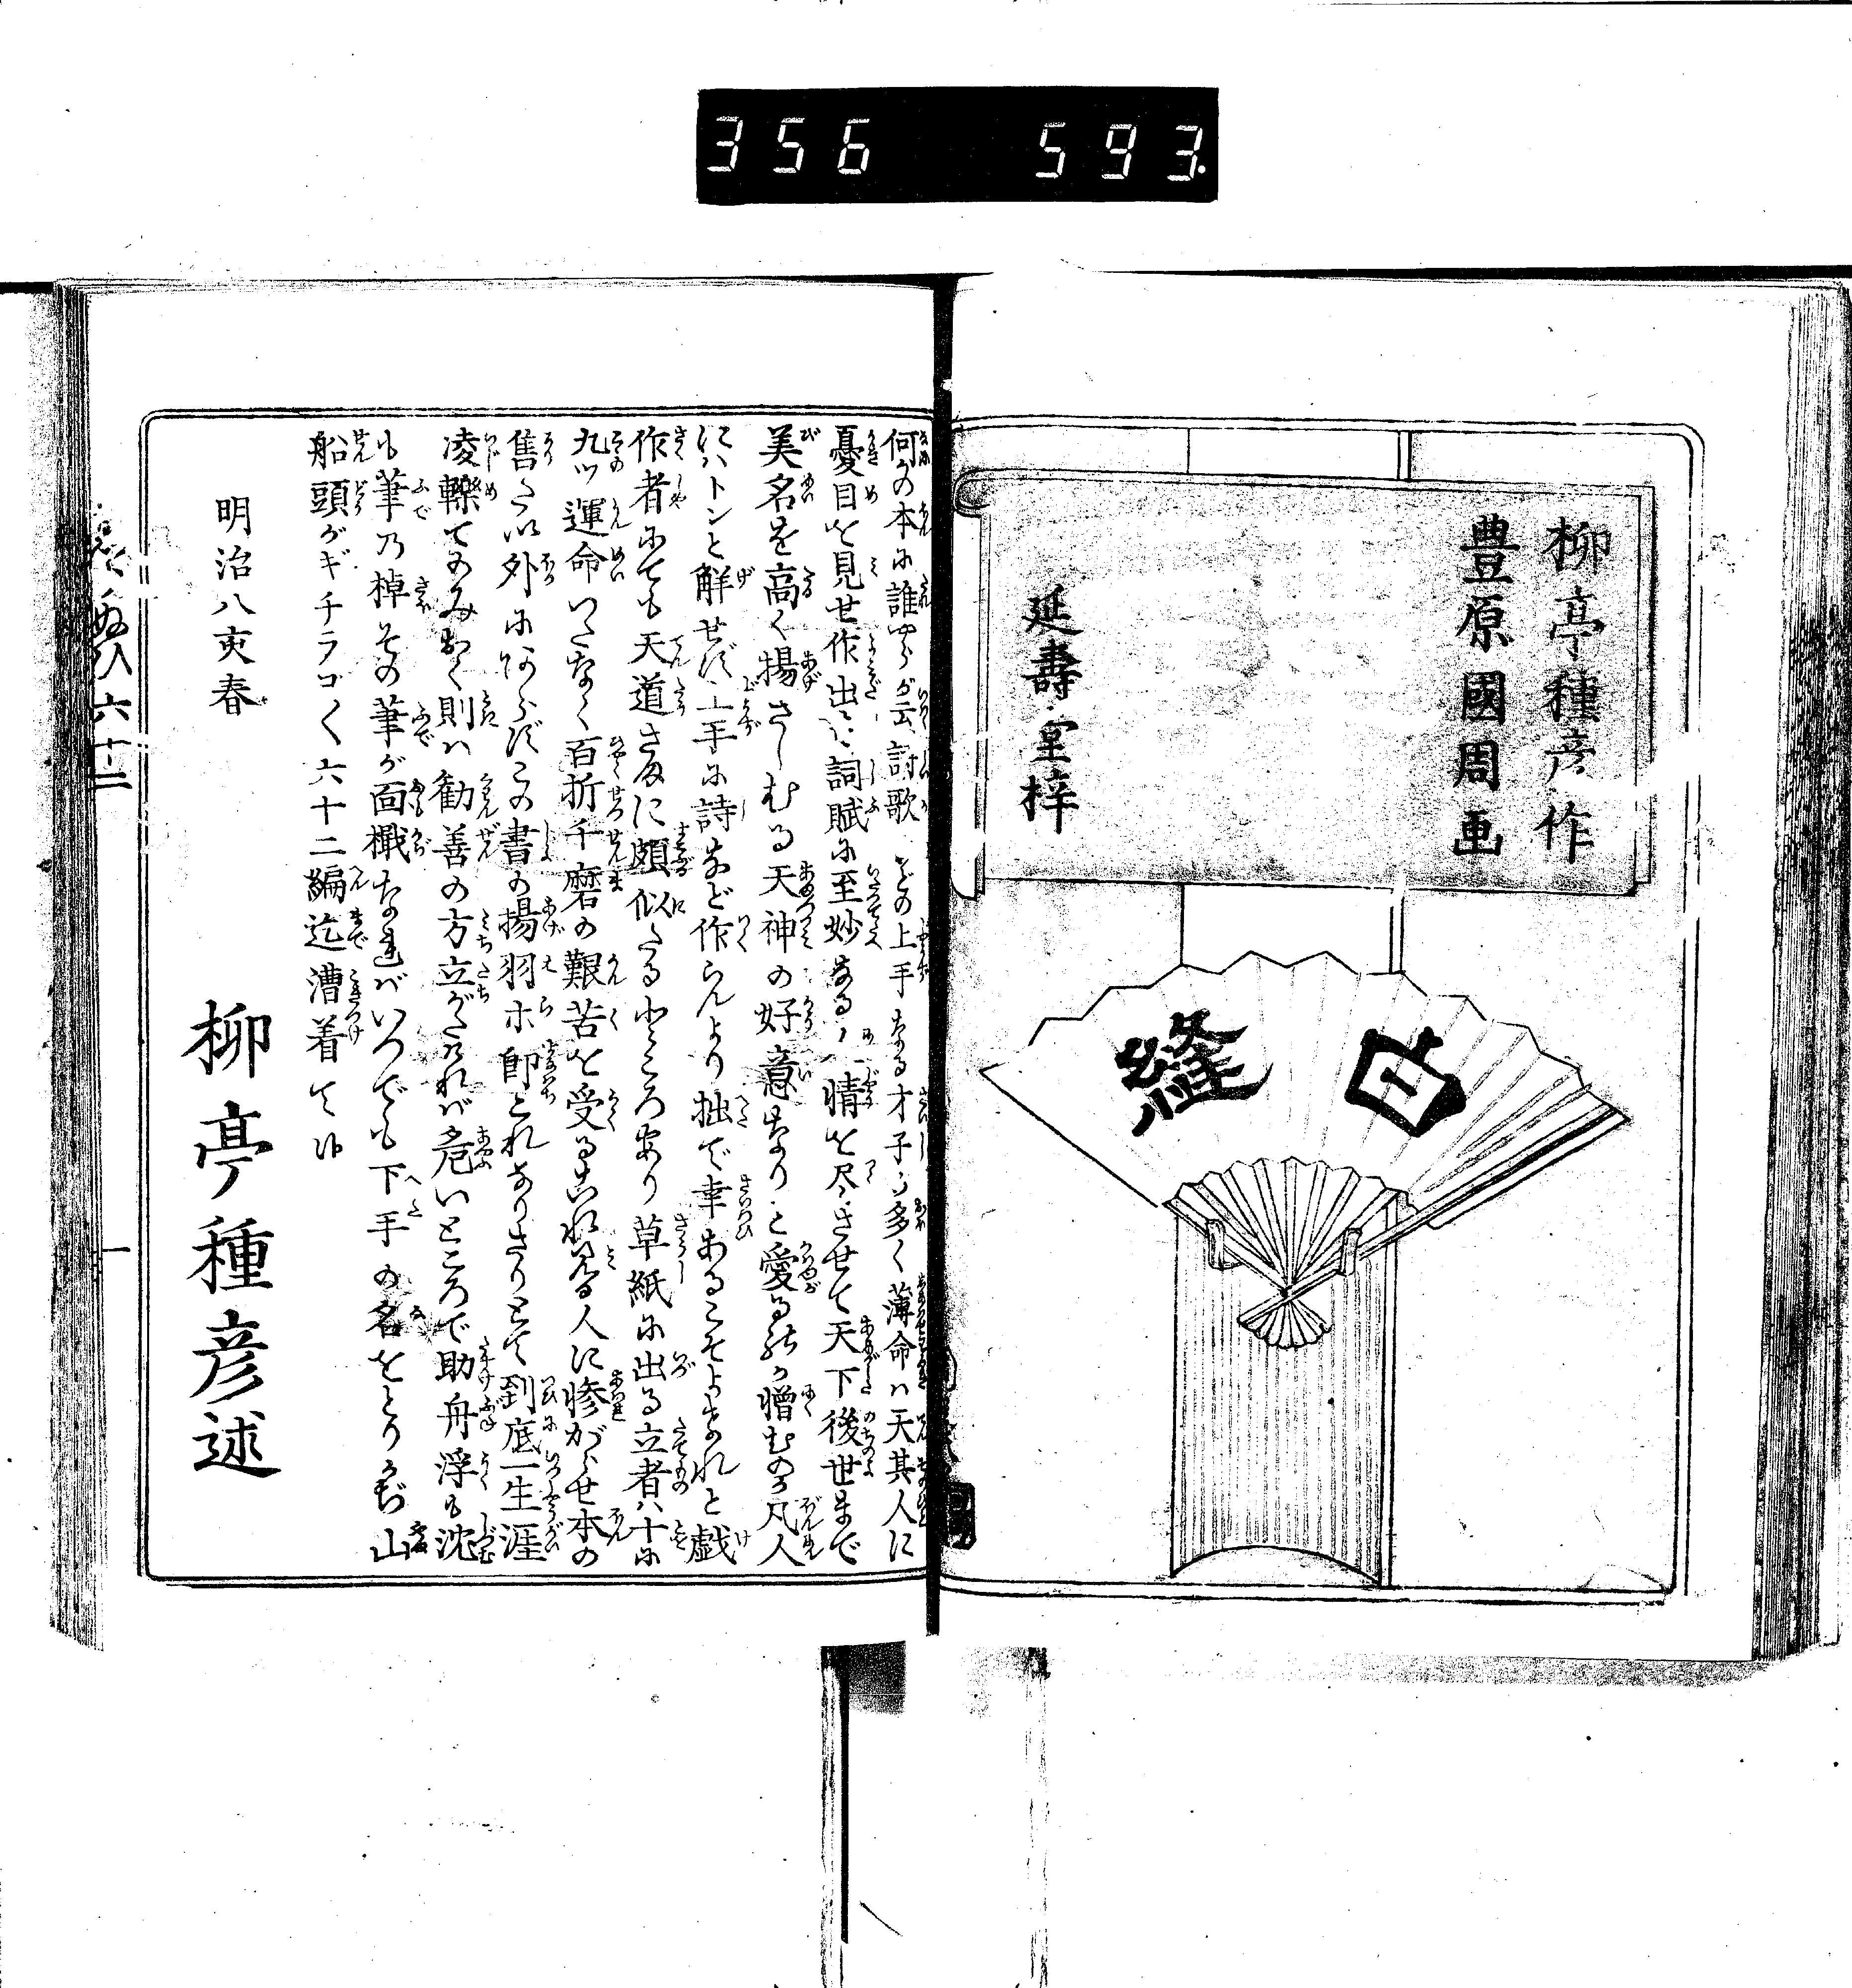 356 593.
柳亭種彦作
豊原國周画
延壽堂梓
白縫
何かの本に誰やらが云詩歌などの上手なる才子の多く薄命ハ天其人に
憂目を見せ作出す詞賦に至妙なる情を尽させて天下後世まで
美名を高く揚さしむる天神の好意なりと愛るが憎むの凡人
にハトンと解せず上手に詩など作らんより拙で幸あるこそよけれと戯
作者にても天道さまに頗似たるところあり草紙に出る立者ハ十に
九ツ運命つたなく百折千磨の艱苦を受るこれ看る人に惨がらせ本の
售たい外にあらずこの書の揚羽ホ即これなりさりとて到底一生涯
凌轢てのみおく則ハ勧善の方立がたけれバ危いところで助舟浮も沈
も筆乃棹その筆が面檝なれバいつでも下手の名をとりかぢ山
船頭がギチラコ〱六十二編迄漕着て候
明治八亥春
柳亭種彦述
六十二
一